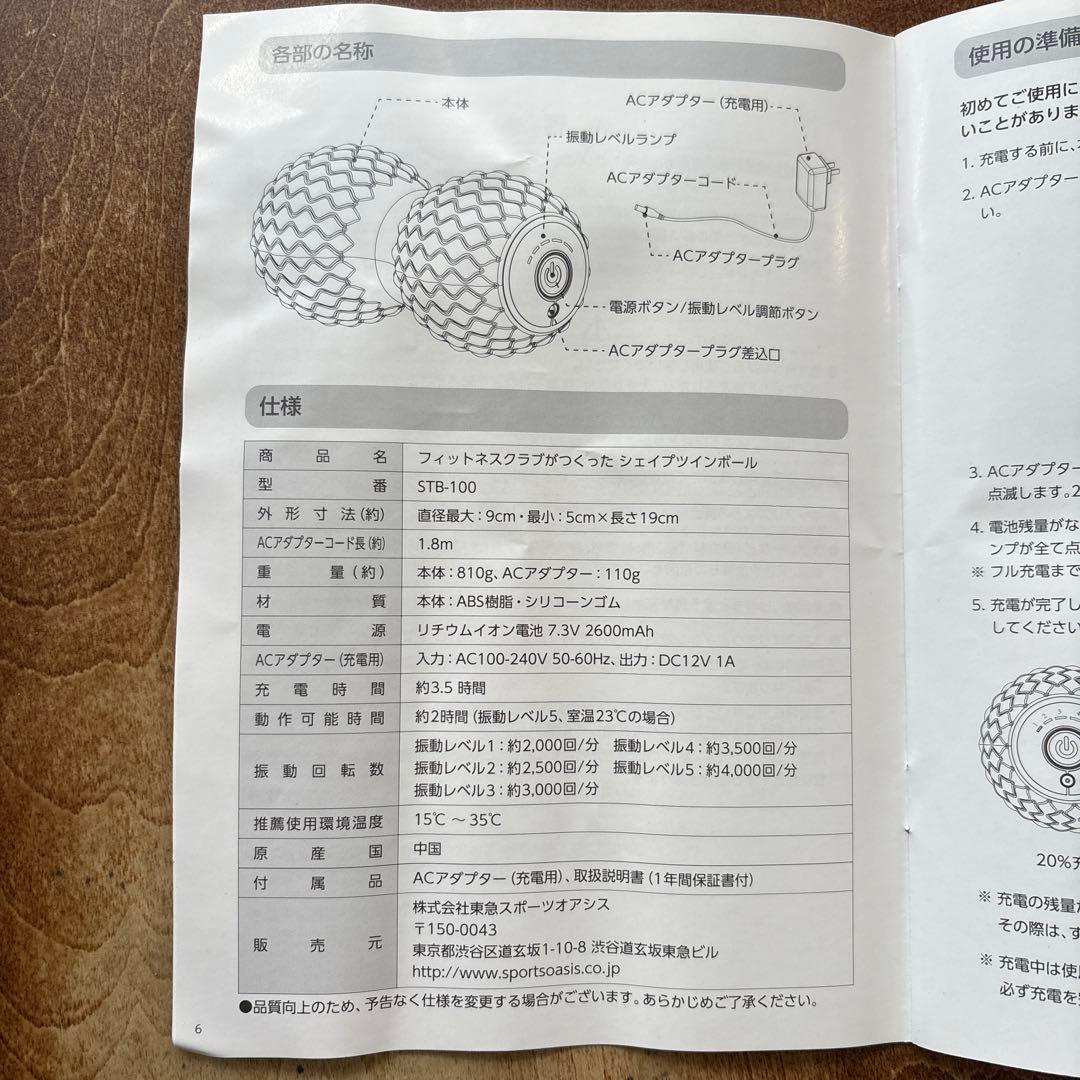 各部の名称
本体
ACアダプター（充電用）
振動レベルランプ
ACアダプターコード
ACアダプタープラグ
電源ボタン/振動レベル調節ボタン
ACアダプタープラグ差込口
仕様
商品名 フィットネスクラブがつくった シェイプツインボール
型番 STB-100
外形寸法(約) 直径最大：9cm・最小：5cm×長さ19cm
ACアダプターコード長(約) 1.8m
重量(約) 本体：810g、ACアダプター：110g
材質 本体：ABS樹脂・シリコーンゴム
電源 リチウムイオン電池 7.3V 2600mAh
ACアダプター(充電用) 入力：AC100-240V 50-60Hz、出力：DC12V 1A
充電時間 約3.5 時間
動作可能時間 約2時間 (振動レベル5、室温23℃の場合)
振動回転数 振動レベル1：約2,000回/分 振動レベル4：約3,500回/分
振動レベル2：約2,500回/分 振動レベル5：約4,000回/分
振動レベル3：約3,000回/分
推薦使用環境温度 15℃ ～ 35℃
原産国 中国
付属品 ACアダプター (充電用)、取扱説明書 (1年間保証書付)
販売元 株式会社東急スポーツオアシス
〒150-0043
東京都渋谷区道玄坂1-10-8 渋谷道玄坂東急ビル
http://www.sportsoasis.co.jp
●品質向上のため、予告なく仕様を変更する場合がございます。あらかじめご了承ください。
6
使用の準備
初めてご使用に
いことがありま
1. 充電する前に、
2. ACアダプター
い。
3. ACアダプター
点滅します。2
4. 電池残量がな
ンプが全て点
※ フル充電まで
5. 充電が完了し
してください
20%
※ 充電の残量が
その際は、す
※ 充電中は使
必ず充電を